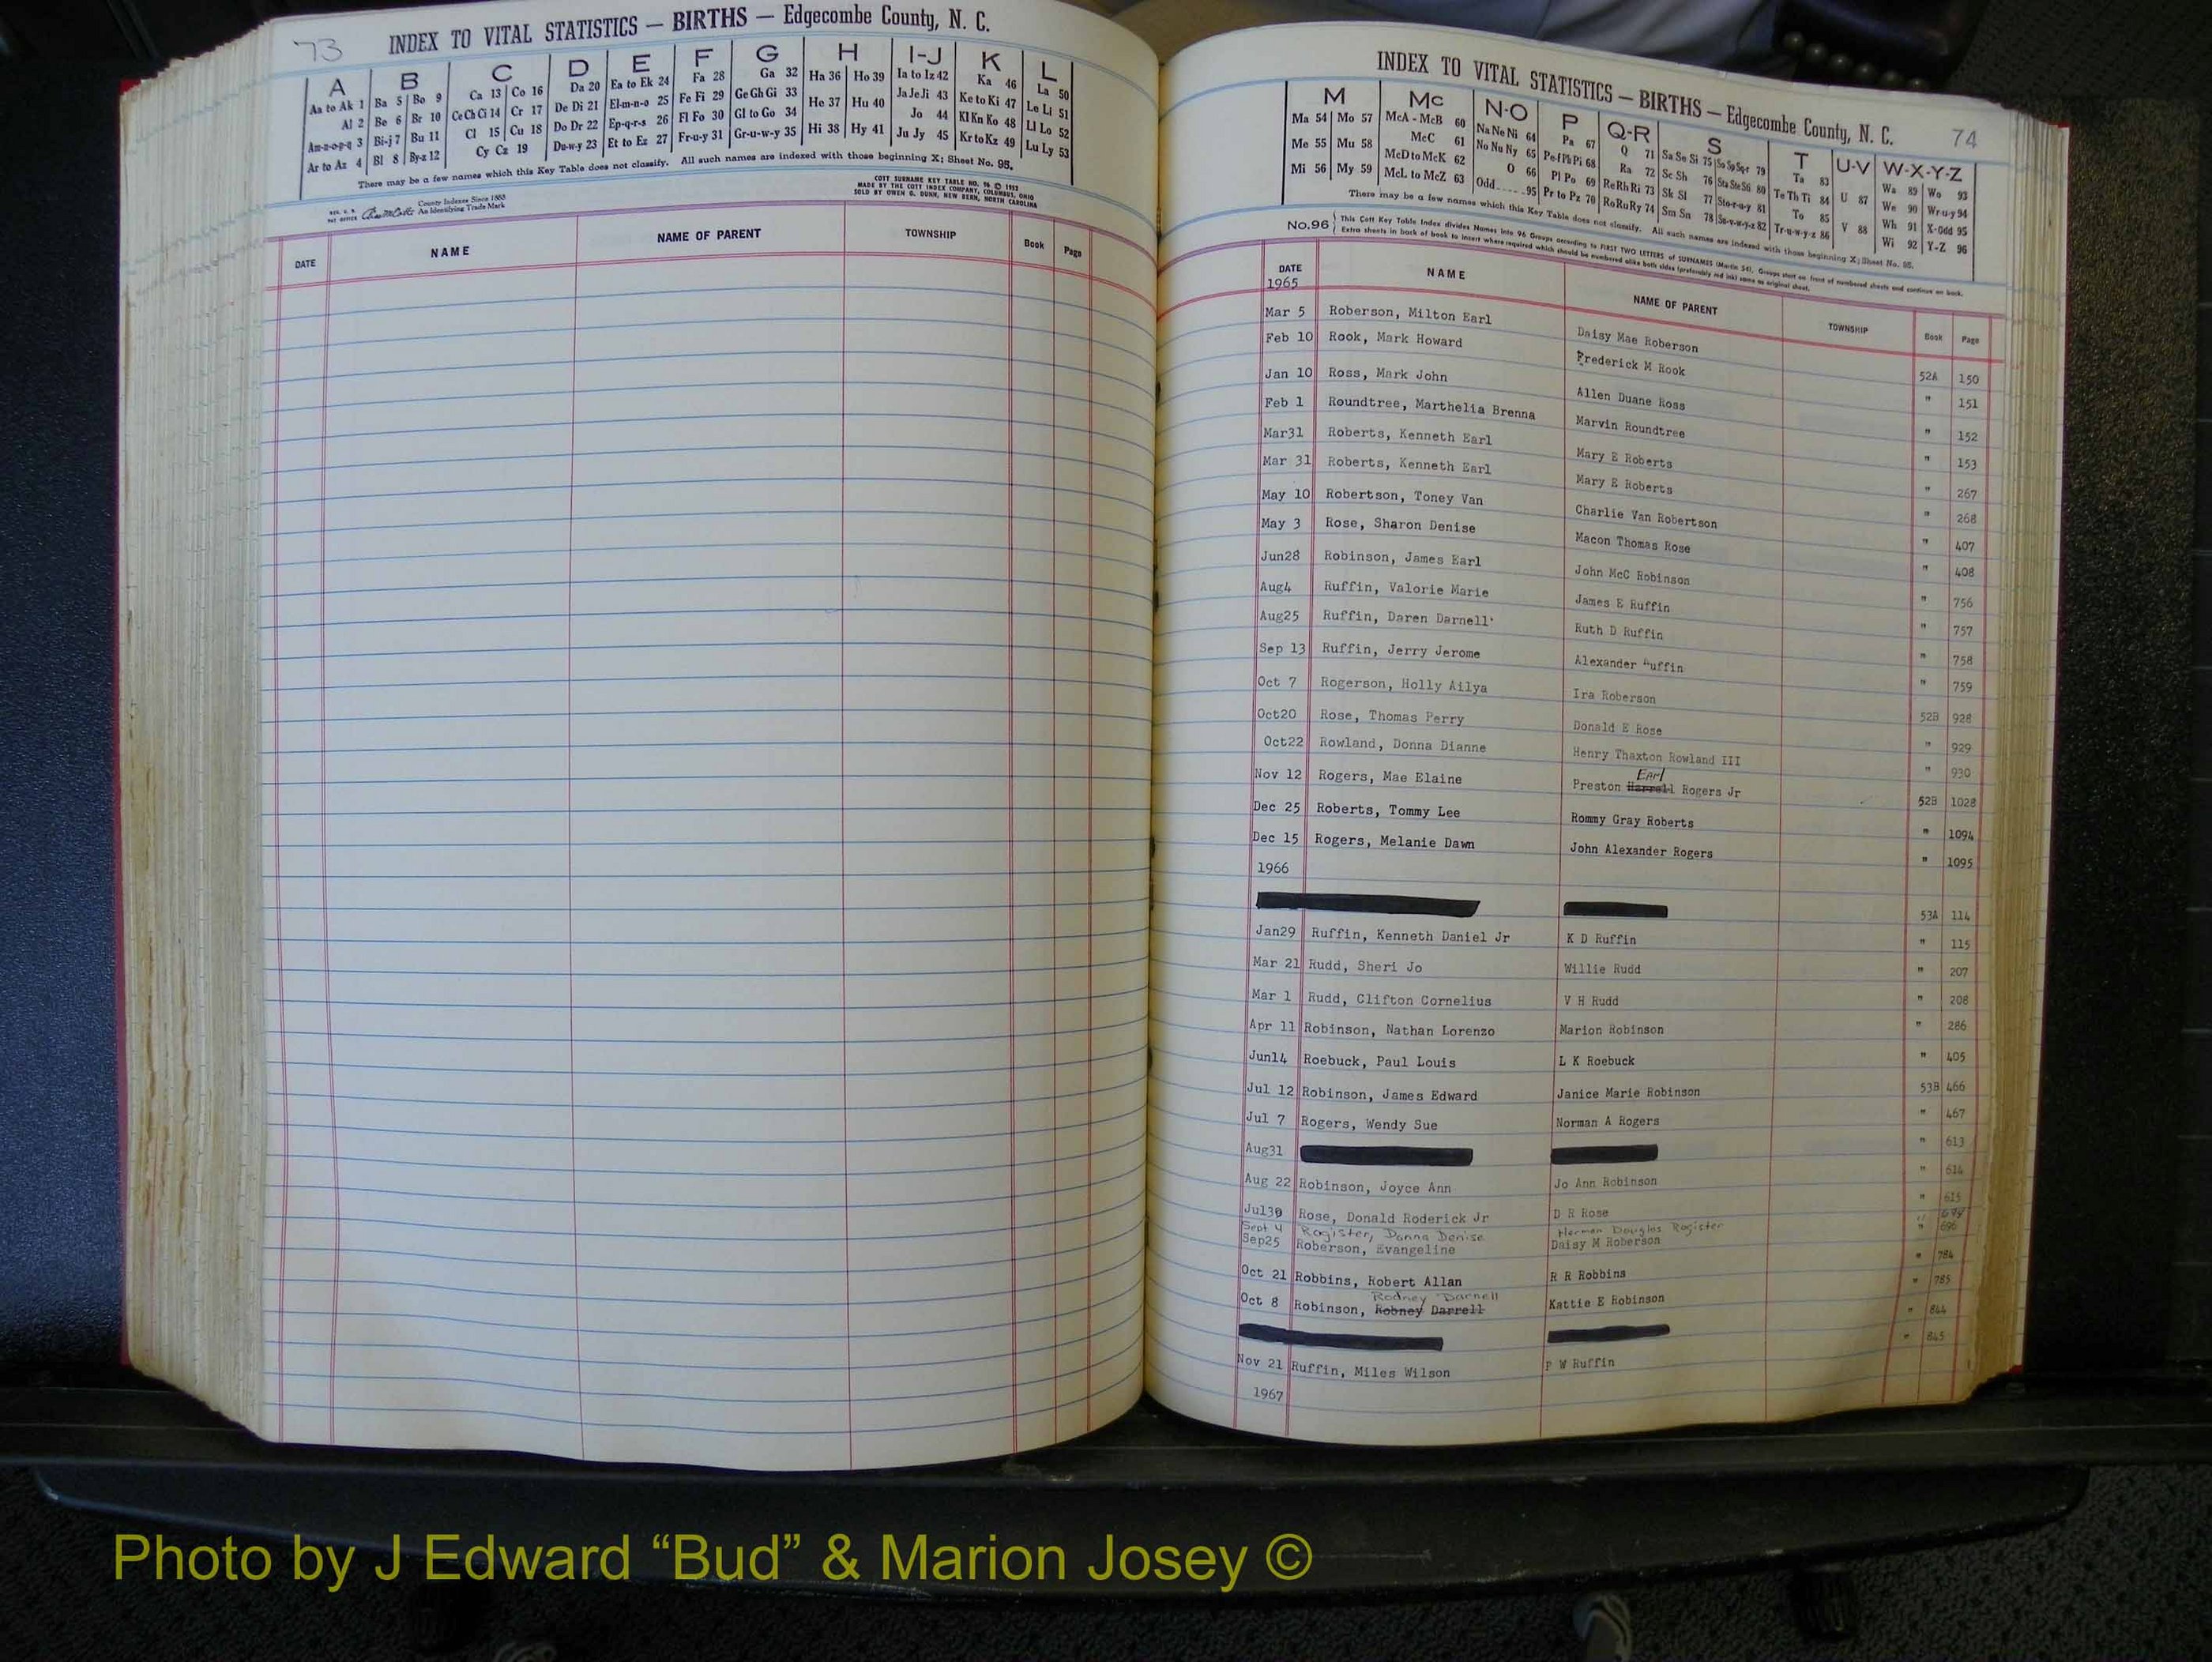 73
INDEX TO VITAL STATISTICS — BIRTHS — Edgecombe County, N. C.
A B C D E F G H I-J K L
Aa to Ak 1 Ba 5 Bo 9 Ca 13 Co 16 Da 20 Ea to Ek 24 Fa 28 Ga 32 Ha 36 Ho 39 Ia to Iz 42 Ka 46 La 50
Al 2 Be 6 Br 10 Ce Ch Ci 14 Cr 17 De Di 21 El-m-n-o 25 Fe Fi 29 Ge Gh Gi 33 He 37 Hu 40 Ja Je Ji 43 Ke to Ki 47 Le Li 51
Am-n-o-p-q 3 Bi-j 7 Bu 11 Cl 15 Cu 18 Do Dr 22 Ep-q-r-s 26 Fl Fo 30 Gl to Go 34 Hi 38 Hy 41 Jo 44 Kl Kn Ko 48 Ll Lo 52
Ar to Az 4 Bl 8 By-z 12 Cy Cz 19 Du-w-y 23 Et to Ez 27 Fr-u-y 31 Gr-u-w-y 35 Ju Jy 45 Kr to Kz 49 Lu Ly 53
There may be a few names which this Key Table does not classify. All such names are indexed with those beginning X; Sheet No. 95.
County Indexes Since 1888
An Identifying Trade Mark
COTT SURNAME KEY TABLE NO. 96 ©
MADE BY THE COTT INDEX COMPANY, COLUMBUS, OHIO
SOLD BY OWEN G. DUNN, NEW BERN, NORTH CAROLINA
DATE NAME NAME OF PARENT TOWNSHIP Book Page
INDEX TO VITAL STATISTICS — BIRTHS — Edgecombe County, N. C.
74
M Mc N-O P Q-R S T U-V W-X-Y-Z
Ma 54 Mo 57 McA - McB 60 Na Ne Ni 64 Pa 67 Q 71 Sa Se Si 75 So Sp Sq-r 79 Ta 83 Wa 89 Wo 93
Me 55 Mu 58 McC 61 No Nu Ny 65 Pe-f Ph Pi 68 Ra 72 Sc Sh 76 Sta Ste Sti 80 Te Th Ti 84 U 87 We 90 Wr-u-y 94
Mi 56 My 59 McD to McK 62 O 66 Pl Po 69 Re Rh Ri 73 Sk Sl 77 Sto-r-u-y 81 To 85 Wh 91 X-Odd 95
McL to McZ 63 Odd 95 Pr to Pz 70 Ro Ru Ry 74 Sm Sn 78 Su-v-w-y-z 82 Tr-u-w-y-z 86 V 88 Wi 92 Y-Z 96
There may be a few names which this Key Table does not classify. All such names are indexed with those beginning X; Sheet No. 95.
No.96 This Cott Key Table Index divides Names into 96 Groups according to FIRST TWO LETTERS of SURNAMES (Martin 54). Groups start on front of numbered sheets and continue on back.
Extra sheets in back of book to insert where required which should be numbered alike both sides (preferably red ink) same as original sheet.
DATE NAME NAME OF PARENT TOWNSHIP Book Page
1965
Mar 5 Roberson, Milton Earl Daisy Mae Roberson 52A 150
Feb 10 Rook, Mark Howard Frederick M Rook " 151
Jan 10 Ross, Mark John Allen Duane Ross " 152
Feb 1 Roundtree, Marthelia Brenna Marvin Roundtree " 153
Mar31 Roberts, Kenneth Earl Mary E Roberts " 267
Mar 31 Roberts, Kenneth Earl Mary E Roberts " 268
May 10 Robertson, Toney Van Charlie Van Robertson " 407
May 3 Rose, Sharon Denise Macon Thomas Rose " 408
Jun28 Robinson, James Earl John McC Robinson " 756
Aug4 Ruffin, Valorie Marie James E Ruffin " 757
Aug25 Ruffin, Daren Darnell Ruth D Ruffin " 758
Sep 13 Ruffin, Jerry Jerome Alexander "uffin " 759
Oct 7 Rogerson, Holly Ailya Ira Roberson 52B 928
Oct20 Rose, Thomas Perry Donald E Rose " 929
Oct22 Rowland, Donna Dianne Henry Thaxton Rowland III " 930
Earl
Nov 12 Rogers, Mae Elaine Preston Harrell Rogers Jr 52B 1028
Dec 25 Roberts, Tommy Lee Rommy Gray Roberts " 1094
Dec 15 Rogers, Melanie Dawn John Alexander Rogers " 1095
1966
53A 114
Jan29 Ruffin, Kenneth Daniel Jr K D Ruffin " 115
Mar 21 Rudd, Sheri Jo Willie Rudd " 207
Mar 1 Rudd, Clifton Cornelius V H Rudd " 208
Apr 11 Robinson, Nathan Lorenzo Marion Robinson " 286
Jun14 Roebuck, Paul Louis L K Roebuck " 405
Jul 12 Robinson, James Edward Janice Marie Robinson 53B 466
Jul 7 Rogers, Wendy Sue Norman A Rogers " 467
Aug31 " 613
Aug 22 Robinson, Joyce Ann Jo Ann Robinson " 614
Jul30 Rose, Donald Roderick Jr D R Rose " 615
Sept 4 Rogister, Donna Denise Herman Douglas Rogister "
Sep25 Roberson, Evangeline Daisy M Roberson " 696
Oct 21 Robbins, Robert Allan R R Robbins " 784
Rodney Darnell
Oct 8 Robinson, Robney Darrell Kattie E Robinson " 785
" 844
Nov 21 Ruffin, Miles Wilson P W Ruffin " 845
1967
Photo by J Edward “Bud” & Marion Josey ©